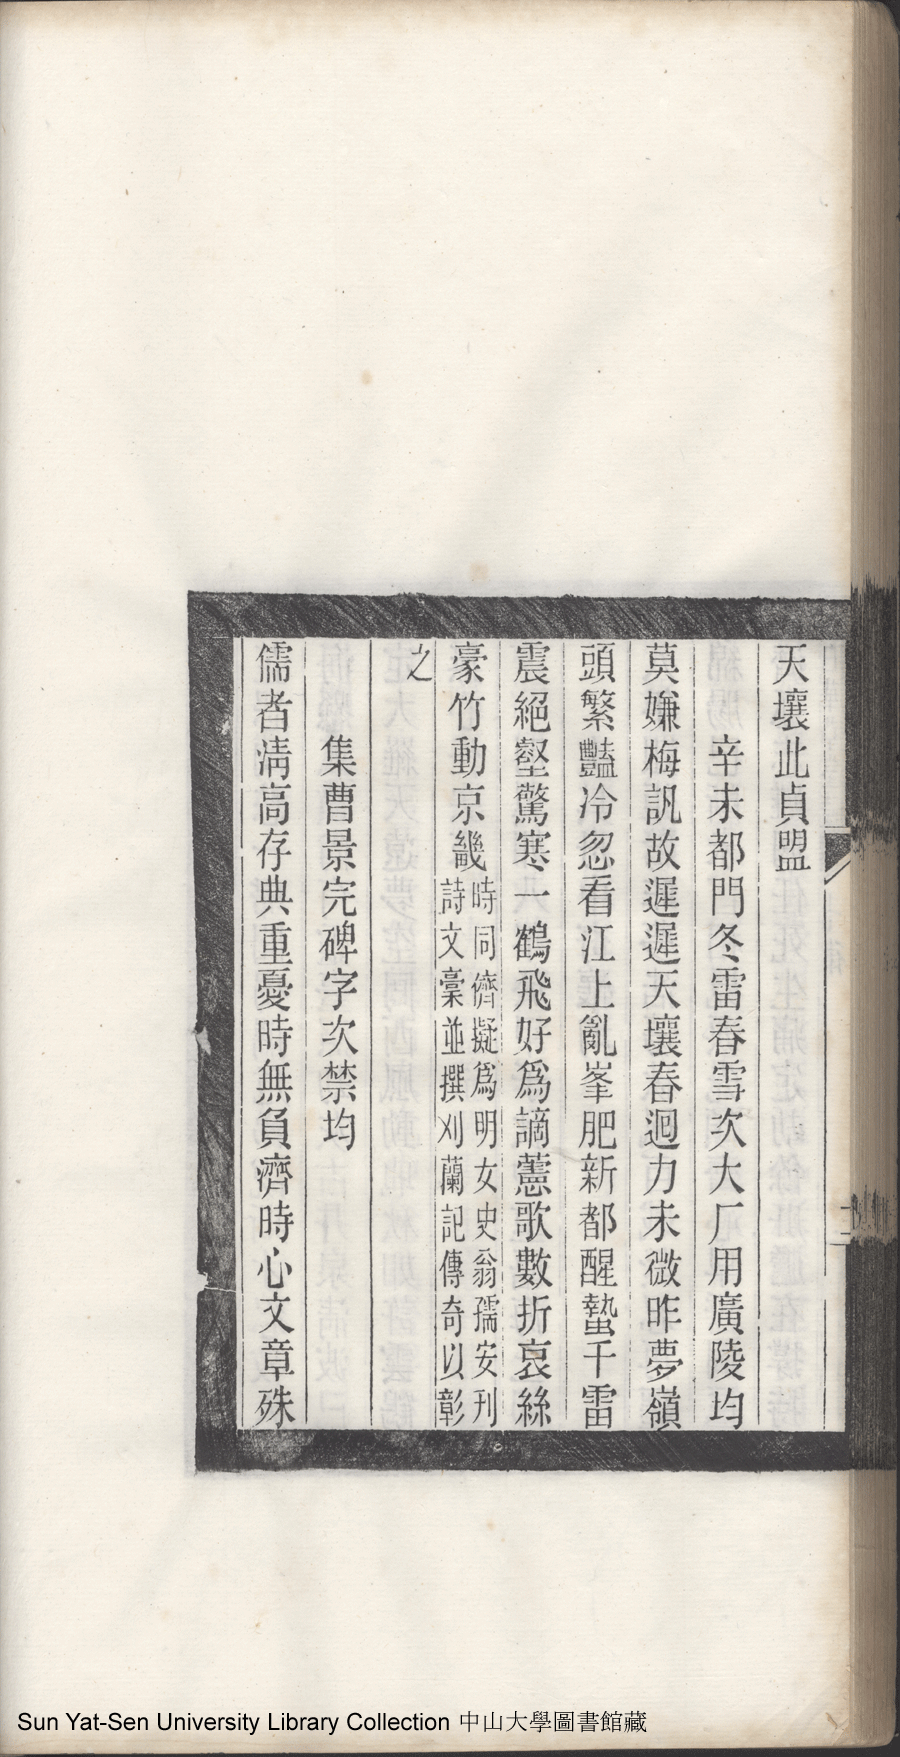 天壤此貞盟
辛未都門冬雷春雪次大厂用廣陵均
莫嫌梅訊故遲遲天壤春迴力未微昨夢嶺
頭繁豔冷忽看江上亂峯肥新都醒蟄千雷
震絕壑驚寒一鶴飛好爲謫蕙歌數折哀絲
豪竹動京畿
時同儕擬爲明女史翁孺安刊
詩文稾並撰刈蘭記傳奇以彰
之
集曹景完碑字次禁均
儒者清高存典重憂時無負濟時心文章殊
Sun Yat-Sen University Library Collection 中山大學圖書館藏